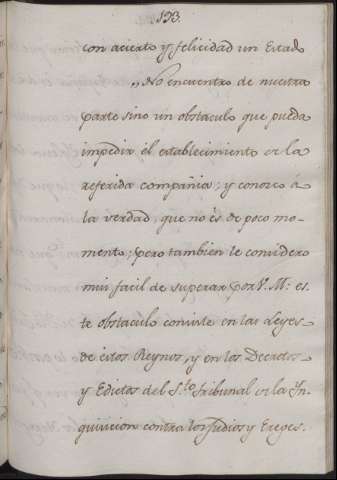 193.
con acierto y felicidad un Estado
„No encuentro de nuestra
parte sino un obstaculo que pueda
impedir el establecimiento de la
referida compañia; y conosco â
la verdad, que no ês de poco mo-
mento; pero tambien le considero
mui facil de superar por V. M: es-
te obstaculo consiste en las Leyes
de êstos Reynos, y en los Decretos
y Edictos del S.to Tribunal de la In-
quisicion contra los Judios y Ereges.